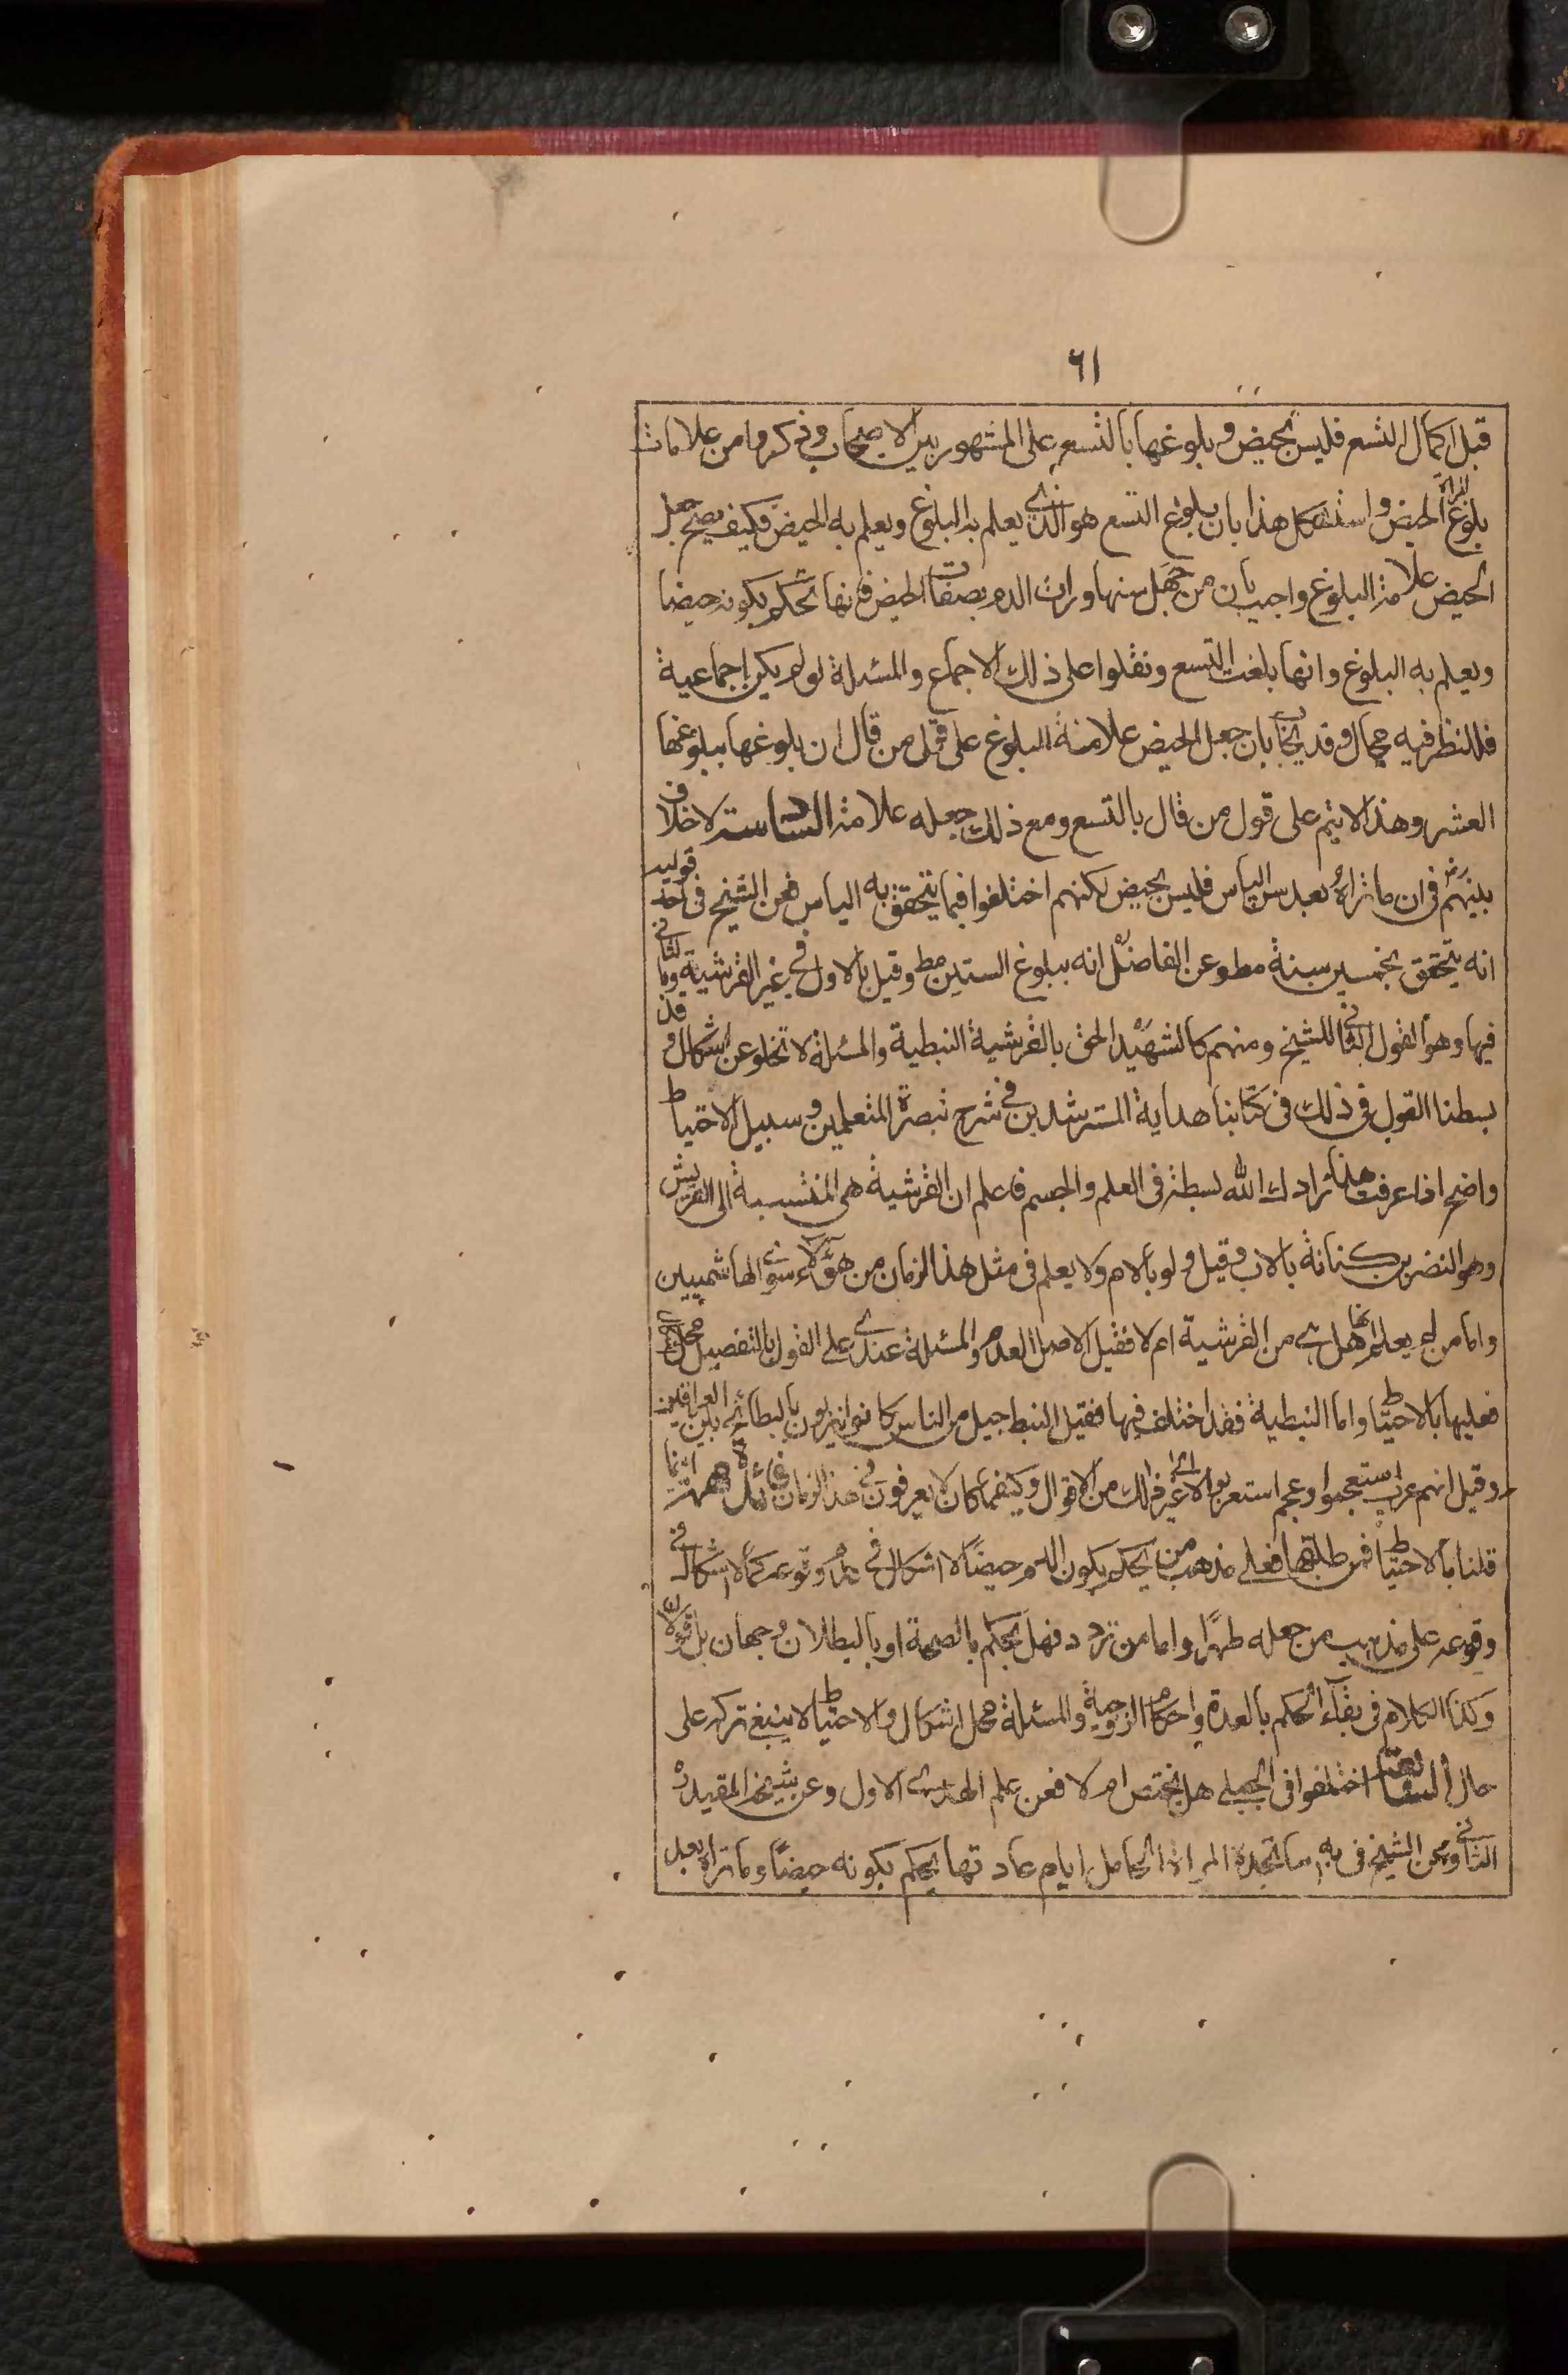 ٦١
قبل اكمال التسع فليس بحيض وبلوغها بالتسع على المشهور بين الاصحاب وذكروا من علامات
بلوغ المراة الحيض واستشكل هذا بان بلوغ التسع هو الذي يعلم به البلوغ ويعلم به الحيض فكيف يصح جعل
الحيض علامة البلوغ واجيب بان من جهل سنها ورات الدم بصفات الحيض فانها تحكم بكونه حيضا
ويعلم به البلوغ وانها بلغت التسع ونقلوا على ذلك الاجماع والمسئلة لو لم يكن اجماعية
فللنظر فيه مجال وقد يجاب بان جعل الحيض علامة البلوغ على قول من قال ان بلوغها ببلوغها
العشر وهذا لا يتم على قول من قال بالتسع ومع ذلك جعله علامة السادسة لا خلاف
بينهم رض في ان ما تراه بعد سن الياس فليس بحيض لكنهم اختلفوا فيما يتحقق به الياس فعن الشيخ في احد قوليه
انه يتحقق بخمسين سنة مط وعن الفاضل ره انه ببلوغ الستين مط وقيل بالاول في غير القرشية وبالثاني
فيها وهو القول الثاني للشيخ ومنهم كالشهيد الحق بالقرشية النبطية والمسئلة لا تخلو عن اشكال وقد
بسطنا القول في ذلك في كتابنا هداية المسترشدين في شرح تبصرة المتعلمين وسبيل الاحتياط
واضح اذا عرفت هذا زادك الله بسطة في العلم والجسم فاعلم ان القرشية هي المنتسبة الى القريش
وهو النضر بن كنانة بالاب وقيل ولو بالام ولا يعلم في مثل هذا الزمان من هؤلاء سوى الهاشميين
واما من لم يعلم انها هل هي من القرشية ام لا فقيل الاصل العدم والمسئلة عندي على القول بالتفصيل محل
فعليها بالاحتياط واما النبطية فقد اختلف فيها فقيل النبط جيل من الناس كانوا ينزلون بالبطائح بين العراقين
وقيل انهم عرب استعجموا وعجم استعربوا الى غير ذلك من الاقوال وكيفما كان لا يعرفون في هذا الزمان فائدة مهمة انما
قلنا بالاحتياط فمن طلقها فعلى مذهب من يحكم بكون الدم حيضا لا اشكال في عدم وقوعه كما لا اشكال في
وقوعه على مذهب من جعله طهرا واما من تردد فهل يحكم بالصحة او بالبطلان وجهان بل قولان
وكذا الكلام في بقاء الحكم بالعدة واحكام الزوجية والمسئلة محل اشكال والاحتياط لا ينبغي تركه على
حال السابعة اختلفوا في الحبلى هل يختص ام لا فعن علم الهدى الاول وعن شيخنا المفيد ره
الثاني وعن الشيخ في يه ما تجده المراة الحامل ايام عادتها يحكم بكونه حيضا وما تراه بعد